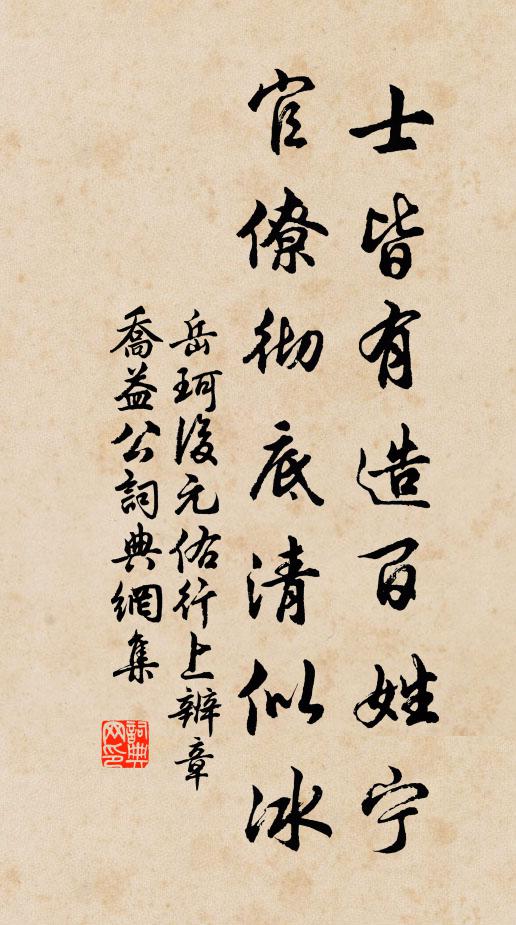 士皆有造百姓宁
官僚彻底清似冰
岳珂復元佑行上辨章
喬益公詞典網集
詞典网印